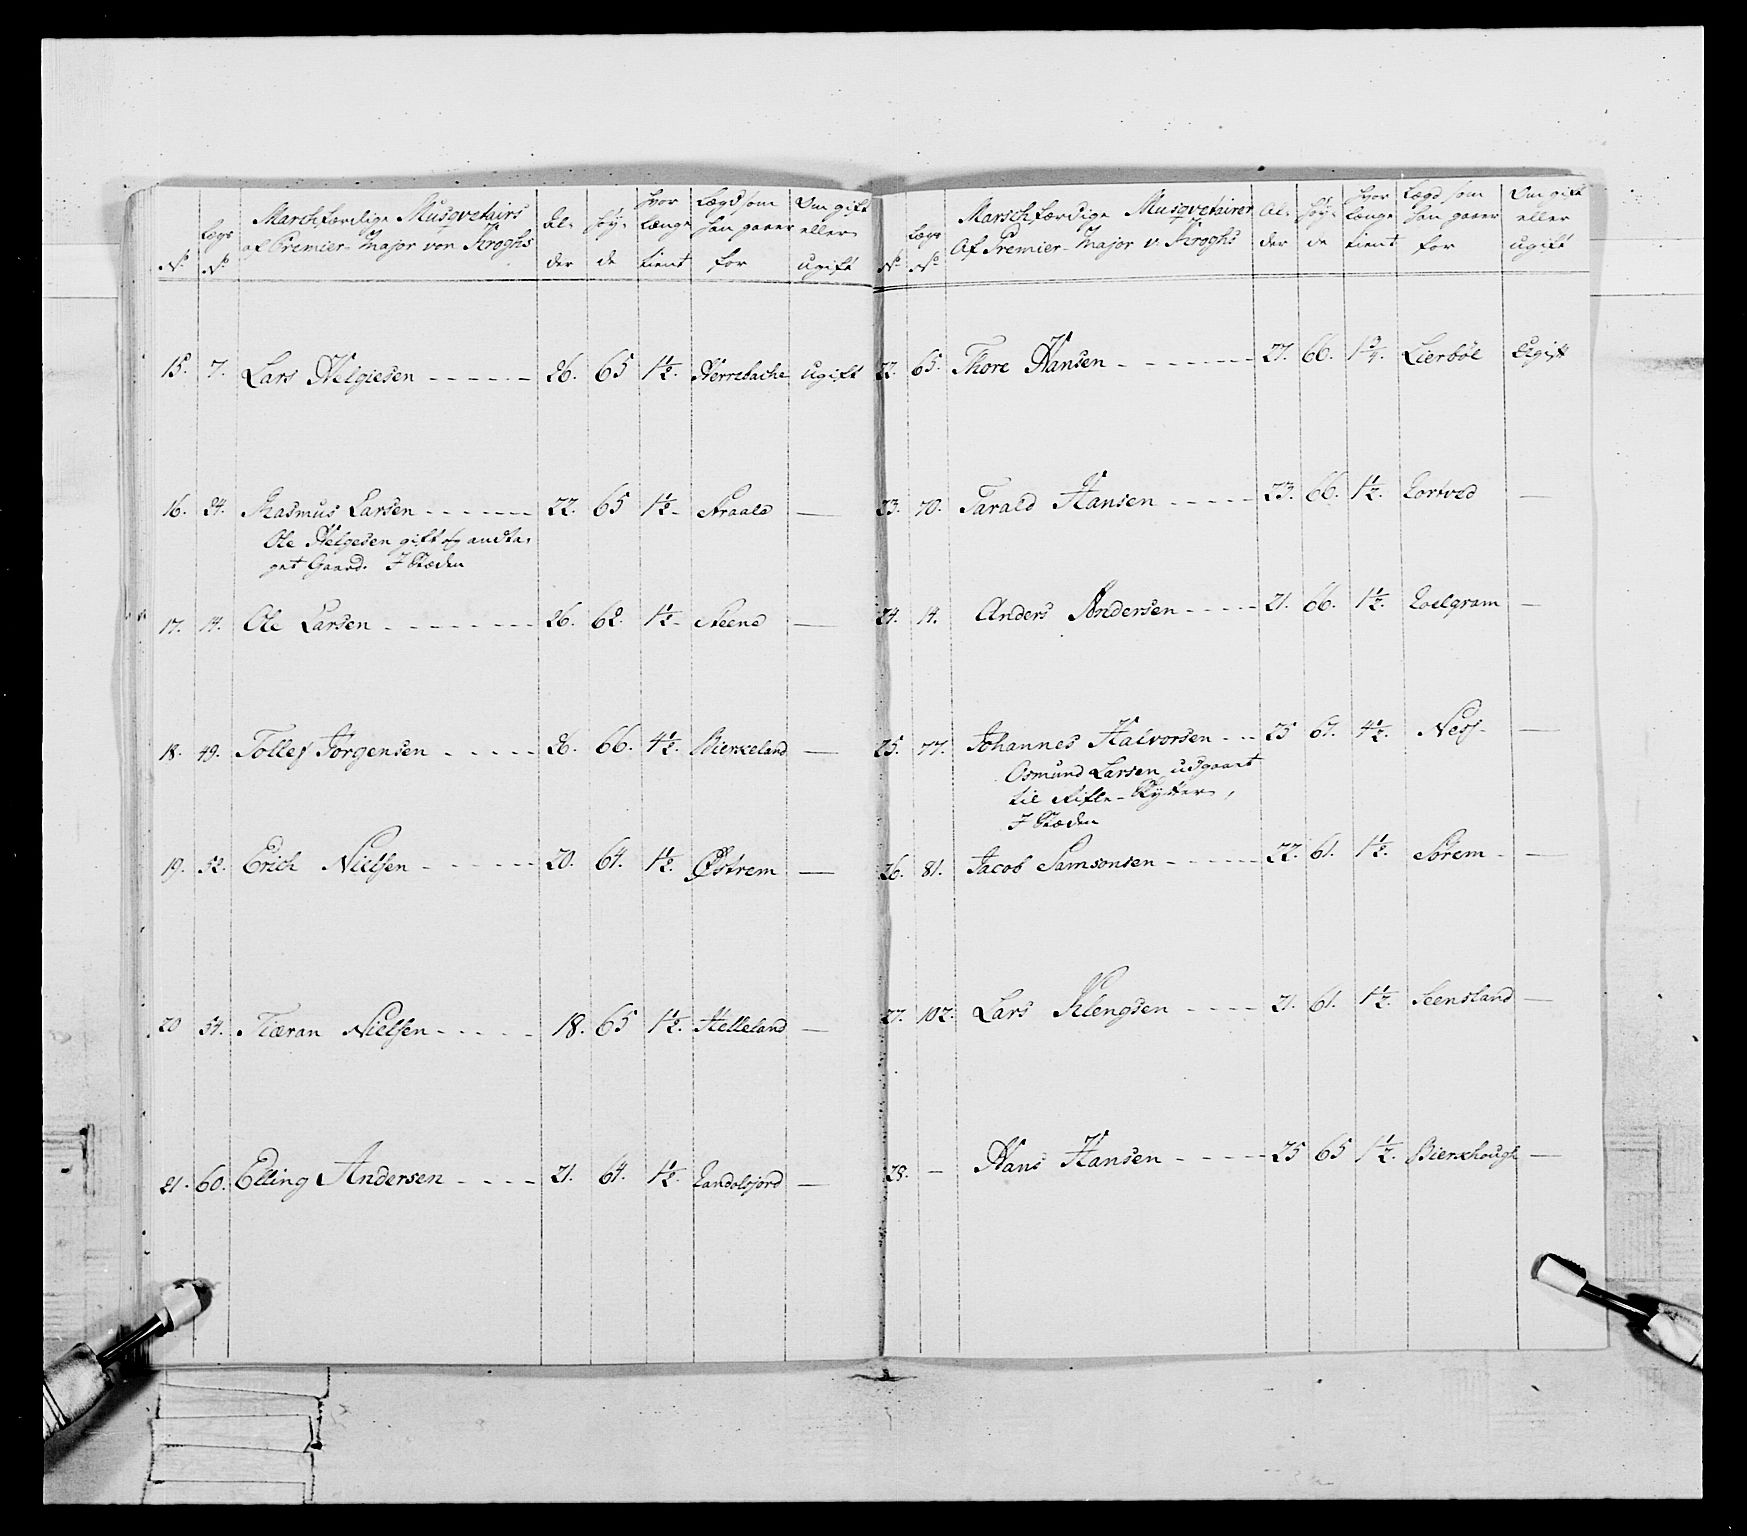 No | Lægs No | Marchfærdige Musqvetairs af Premier-Major von Kroghs | Al-der | Höy-de | hvor længe tient | Lægd som han gaaer for | Om gift eller ugift
15. 7. Lars Helgiesen 26. 65 1½. Herrebache ugift
16. 24. Rasmus Larsen 22. 65 1½ Aaraald —
Ole Helgesen gift og andta-
get Gaard. I Stæden
17. 14. Ole Larsen 26. 62. 1½ Steene —
18. 49. Tollef Jörgensen 26. 66. 4½. Birkeland —
19. 52. Erich Nielsen 20. 64. 1½. Östrem —
20 54. Tiæran Nielsen 18. 65 1½. Helleland —
21. 60. Elling Andersen 21. 64. 1½. —
No | Lægs No | Marschfærdige Musqvetairer Af Premier-Major v. Kroghs | Al-der | Höy-de | hvor længe tient | Lægd som han gaaer for | Om gift eller ugift
22. 65. Thore Hansen 27. 66. 1¾. Lierböe Ugift
23. 70. Tarald Hansen 23. 66. 1½. —
24. 14. Anders Andersen 21. 66. 1½. —
25. 77. Johannes Halvorsen 25 67. 4½. Ness —
Osmund Larsen udgaaet
til Rifle-Skytter,
I Stæden
26. 81. Jacob Samsonsen 22. 61. 1½. Sörem —
27. 102. Lars Klengsen 21. 61. 1½. Seensland —
28. — Hans Hansen 25 65 1½. Bierkhough —